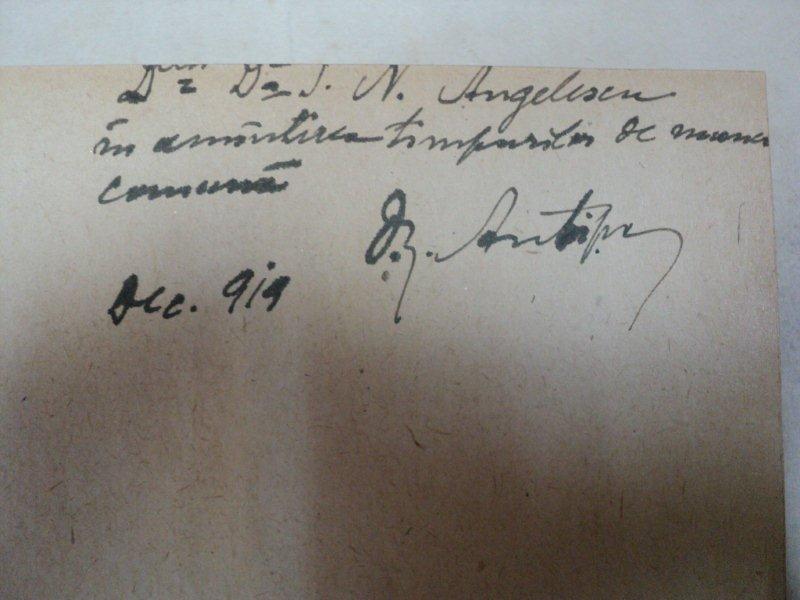 Dr. I. N. Angelescu
în amintirea timpurilor de munca
comună
Gr. Antipa
Dec. 919